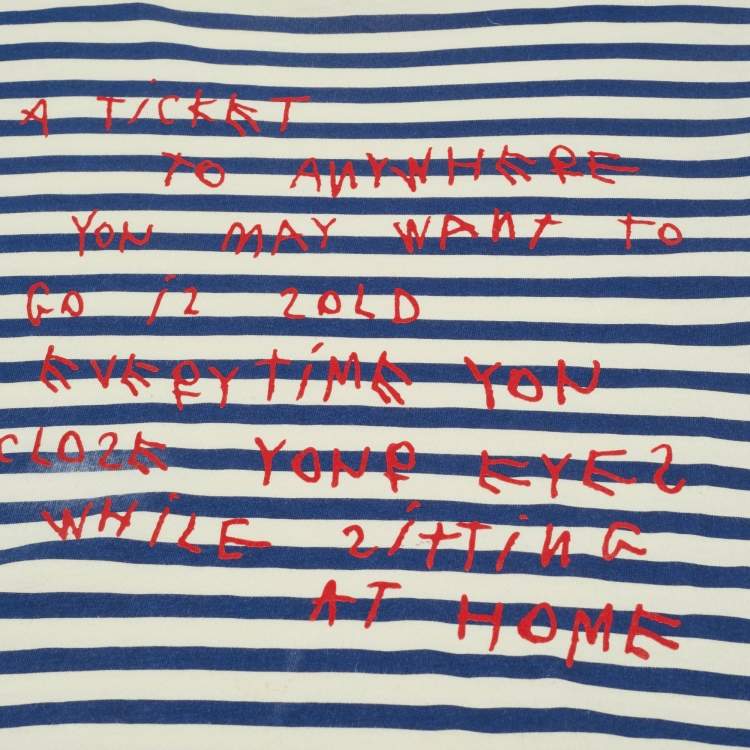 A TICKET
TO ANYWHERE
YOU MAY WANT TO
GO IS SOLD
EVERYTIME YOU
CLOSE YOUR EYES
WHILE SITTING
AT HOME